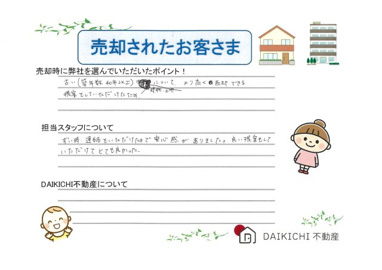 売却されたお客さま
売却時に弊社を選んでいただいたポイント！
古い(築年数40年以上) について、より高く売却できる
提案をしていただけたため
担当スタッフについて
連絡をいただけたので安心感がありました。良い提案をして
いただけてとても良かった。
DAIKICHI不動産について
DAIKICHI 不動産